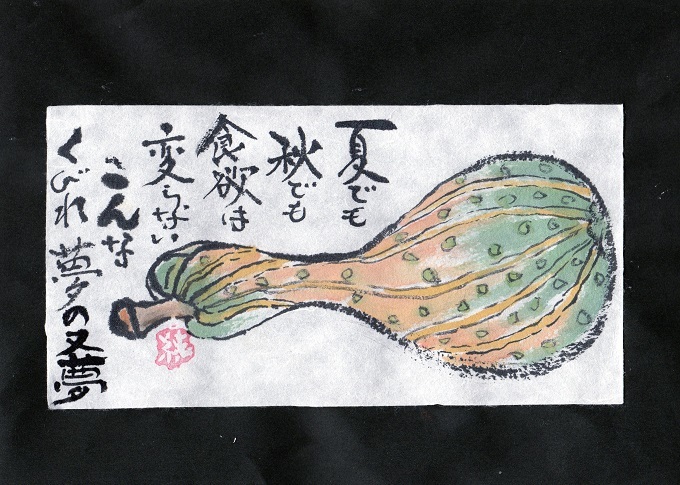 夏でも
秋でも
食欲は
変らない
こんな
くびれ 夢の又夢